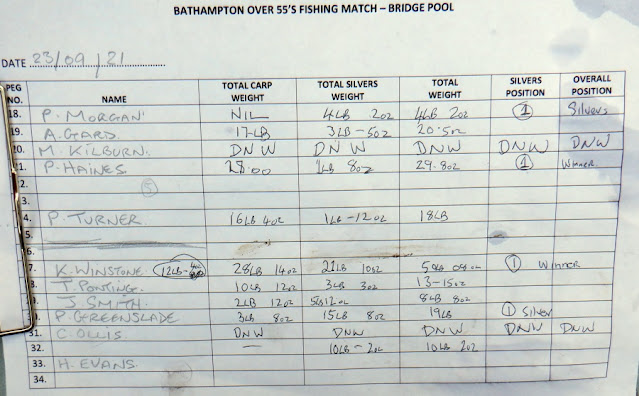 BATHAMPTON OVER 55'S FISHING MATCH – BRIDGE POOL
DATE 23/09/21
PEG NO. NAME TOTAL CARP WEIGHT TOTAL SILVERS WEIGHT TOTAL WEIGHT SILVERS POSITION OVERALL POSITION
18. P. MORGAN NIL 4LB 2oz 4LB 2oz 1 Silvers
19. A. GARD 17-LB 3LB-5oz 20-5oz
20. M. KILBURN DNW DNW DNW DNW DNW
21. P. HAINES 28.00 1LB 8oz 29.8oz 1 Winner
2.
3.
4. P. TURNER 16LB 4oz 1LB-12oz 18LB
5.
6.
7. K. WINSTONE 12LB 28LB 14oz 21LB 10oz 1 Winner
8. T. PONTING. 10LB 12oz 3LB 3oz 13-15oz
J. SMITH. 2LB 12oz 5LB 12oz 8LB 8oz
P. GREENSLADE 3LB 8oz 15LB 8oz 19LB 1 Silver
31. C. OLLIS DNW DNW DNW DNW DNW
32. — 10LB-2oz 10LB 2oz
33. H. EVANS.
34.